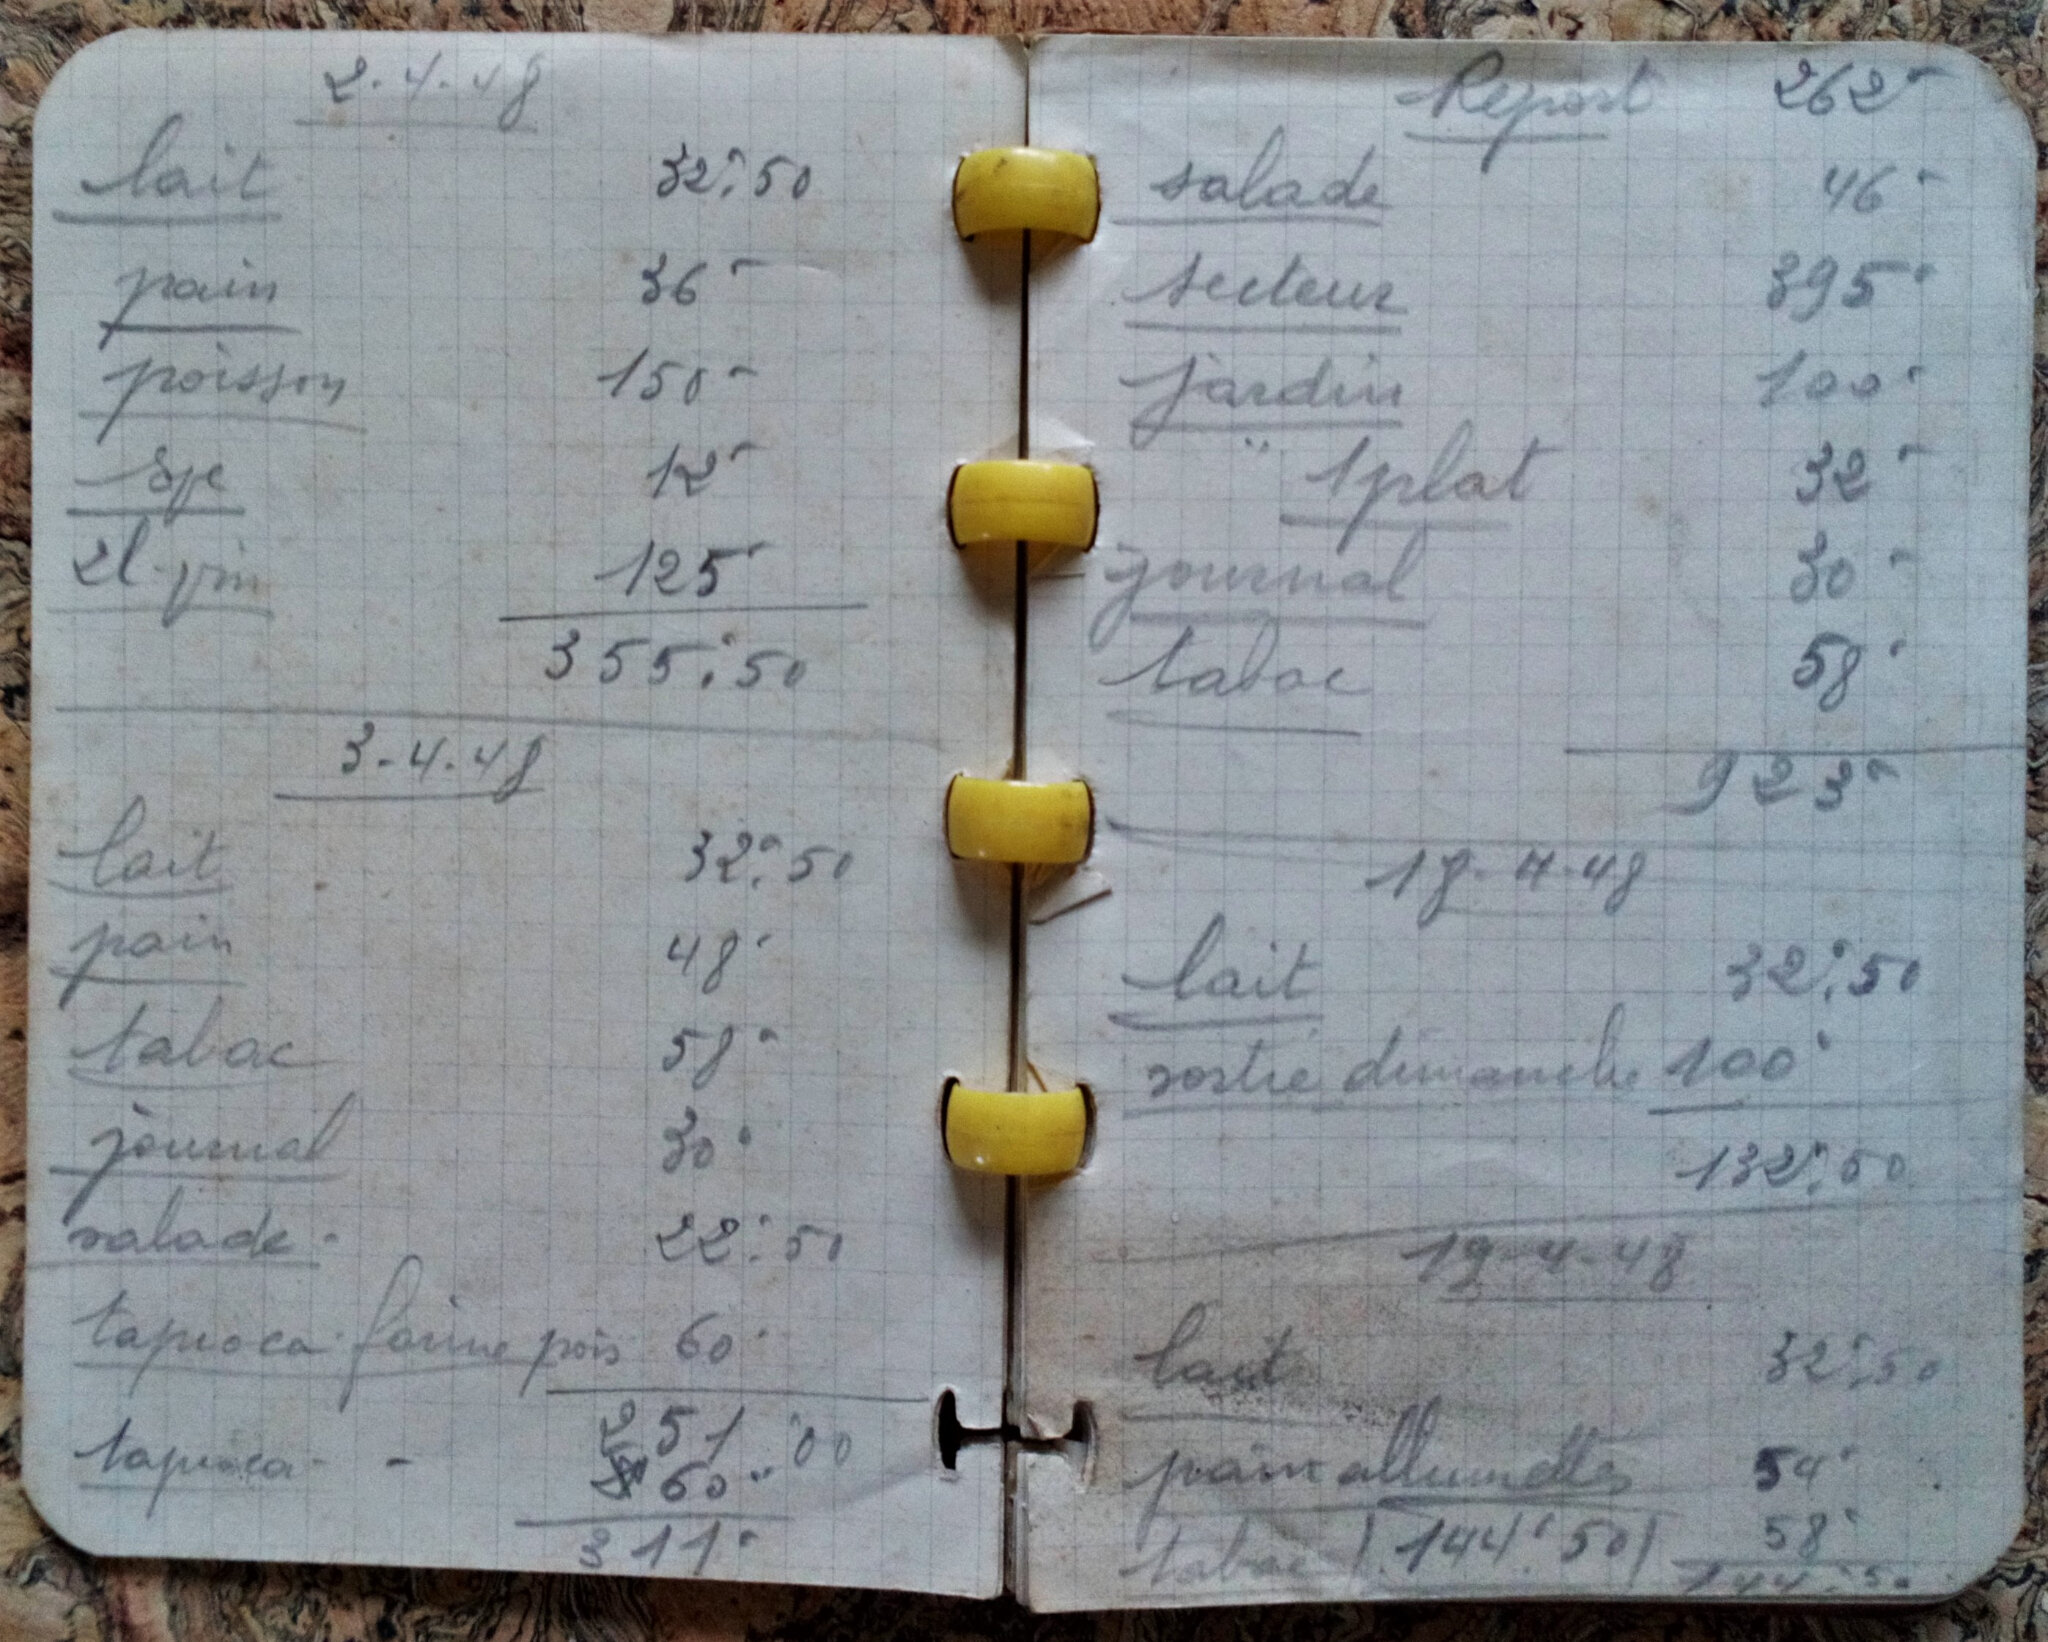 2.4.48
lait 32:50
pain 36-
poisson 150-
12-
2l. vin 125-
355:50
3.4.48
lait 32:50
pain 48-
tabac 58-
journal 30-
salade. 22:50
tapioca. farine pois 60-
251:00
tapioca. - 60-
311-
Report 262-
salade 46-
secteur 395-
jardin 100-
" 1 plat 32-
journal 30-
tabac 58-
923-
18-4-48
lait 32:50
sortie dimanche 100-
132:50
19-4-48
lait 32:50
pain allumettes 54-
tabac (144:50) 58-
144:50